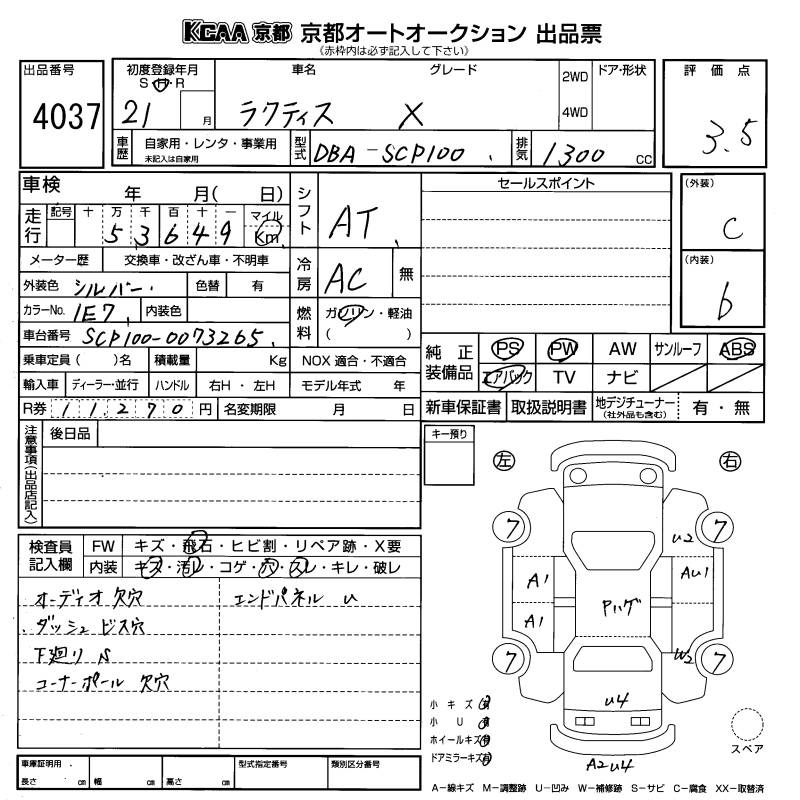 KCAA 京都 京都オートオークション 出品票
《赤枠内は必ず記入して下さい》
出品番号 初度登録年月 車名 グレード 2WD ドア・形状 評価点
S H R
4037 21 月 ラクティス X 4WD 3.5
車歴 自家用・レンタ・事業用 型式 DBA-SCP100 排気 1300 CC
未記入は自家用
車検 年 月( 日) シフト AT セールスポイント (外装)
走行 記号 十 万 千 百 十 一 マイル c
5 3 6 4 9 Km
メーター歴 交換車・改ざん車・不明車 冷房 AC 無 (内装)
外装色 シルバー 色替 有 b
カラーNo. 1E7 内装色 燃料 ガソリン・軽油
( )
車台番号 SCP100-0073265
乗車定員( )名 積載量 Kg NOX 適合・不適合 純正装備品 PS PW AW サンルーフ ABS
輸入車 ディーラー・並行 ハンドル 右H・左H モデル年式 年 エアバック TV ナビ
R券 11,270 円 名変期限 月 日 新車保証書 取扱説明書 地デジチューナー 有・無
(社外品も含む)
注意事項(出品店記入) 後日品 キー預り
左 右
検査員記入欄 FW キズ・飛石・ヒビ割・リペア跡・X要
内装 キズ・汚レ・コゲ・穴・スレ・キレ・破レ
オーディオ欠穴 エンドパネル u
ダッシュ ビス穴
下廻り S
コーナーポール 欠穴
7 7
u2
A1 Au1
Pハゲ
A1
7 W2 7
u4
小キズ有
小U有
ホイールキズ有
ドアミラーキズ有
スペア
A2u4
車庫証明用 型式指定番号 類別区分番号
長さ cm 幅 cm 高さ cm
A−線キズ M−調整跡 U−凹み W−補修跡 S−サビ C−腐食 XX−取替済